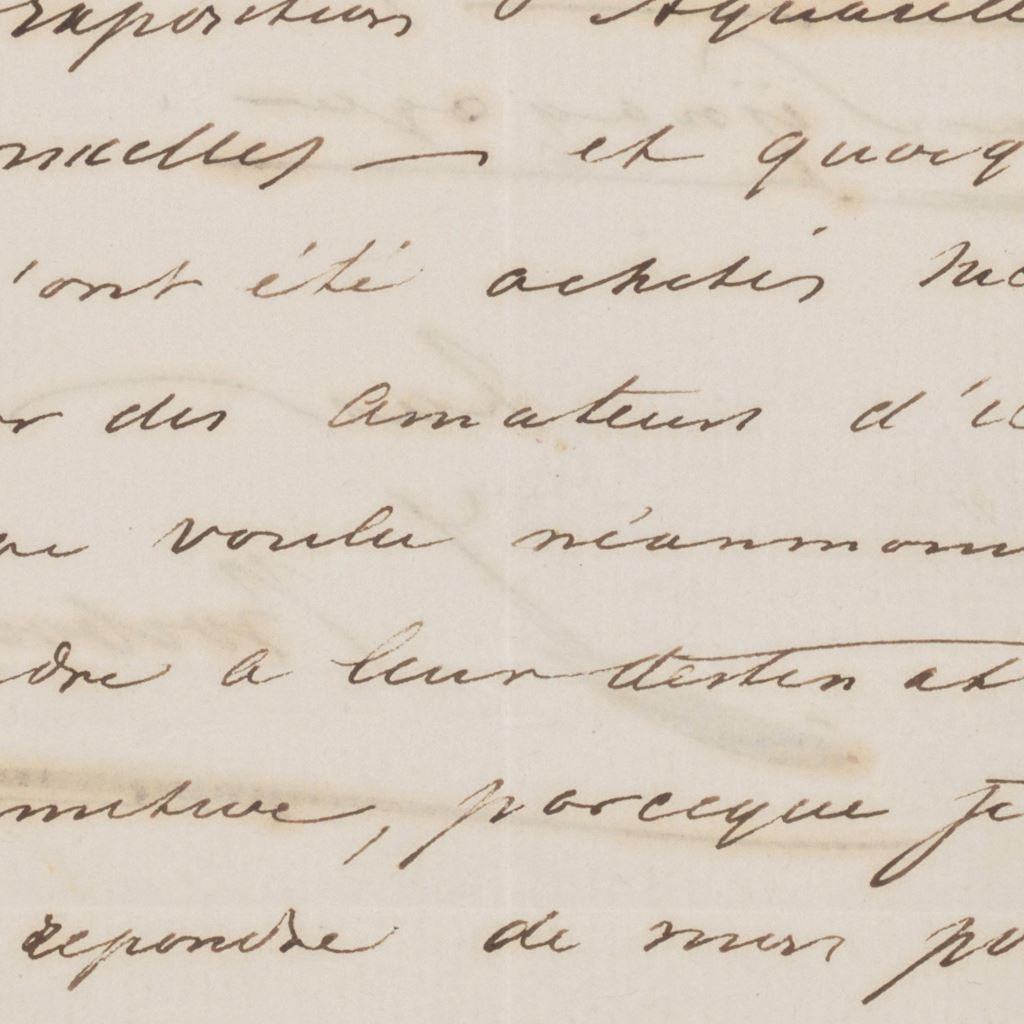 Exposition d'Aquarelle
ruxelles — et quoiq
'ont été achetés mo
r des Amateurs d'ic
voulu néanmoins
dre a leur destinat
mitive, parceque Je
repondre de mon po